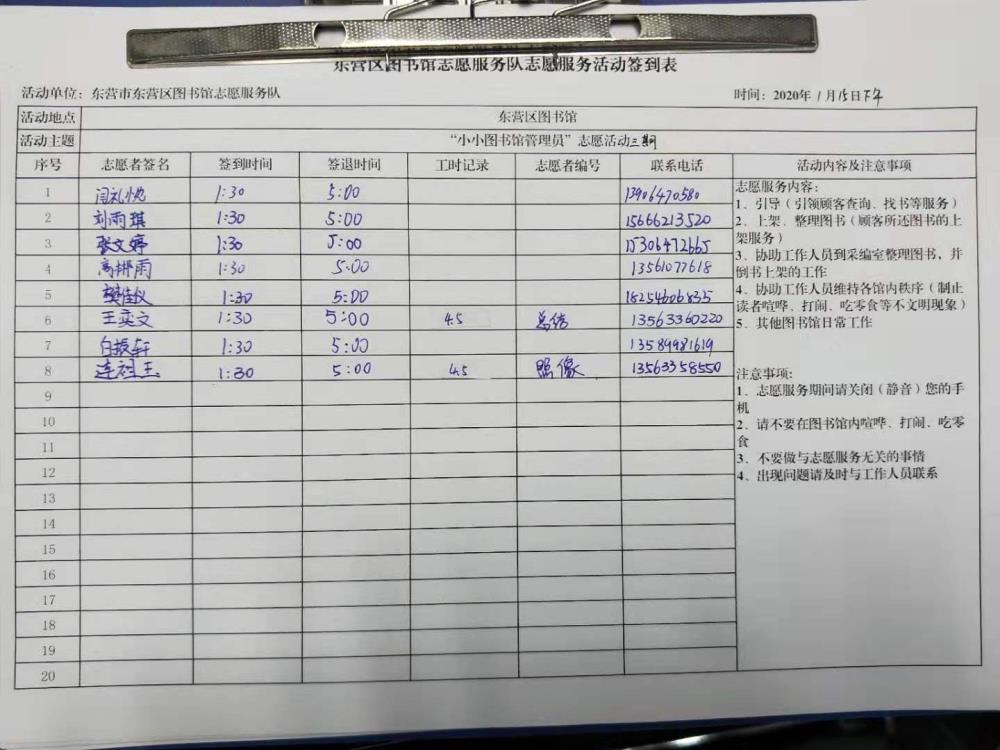 东营区图书馆志愿服务队志愿服务活动签到表
活动单位：东营市东营区图书馆志愿服务队 时间：2020年1月15日下午
活动地点 东营区图书馆
活动主题 “小小图书馆管理员”志愿活动三期
序号 志愿者签名 签到时间 签退时间 工时记录 志愿者编号 联系电话 活动内容及注意事项
1 闫礼悦 1:30 5:00 13906470580
2 刘雨琪 1:30 5:00 15666213520
3 张文婷 1:30 5:00 15306472665
4 高娜雨 1:30 5:00 13561077618
5 樊佳仪 1:30 5:00 18254606835
6 王奕文 1:30 5:00 4.5 总结 13563360220
7 白振轩 1:30 5:00 13589981619
8 连祖玉 1:30 5:00 4.5 照像 13563358550
9
10
11
12
13
14
15
16
17
18
19
20
志愿服务内容：
1、引导（引领顾客查询、找书等服务）
2、上架、整理图书（顾客所还图书的上
架服务）
3、协助工作人员到采编室整理图书，并
倒书上架的工作
4、协助工作人员维持各馆内秩序（制止
读者喧哗、打闹、吃零食等不文明现象）
5、其他图书馆日常工作
注意事项：
1、志愿服务期间请关闭（静音）您的手
机
2、请不要在图书馆内喧哗、打闹、吃零
食
3、不要做与志愿服务无关的事情
4、出现问题请及时与工作人员联系